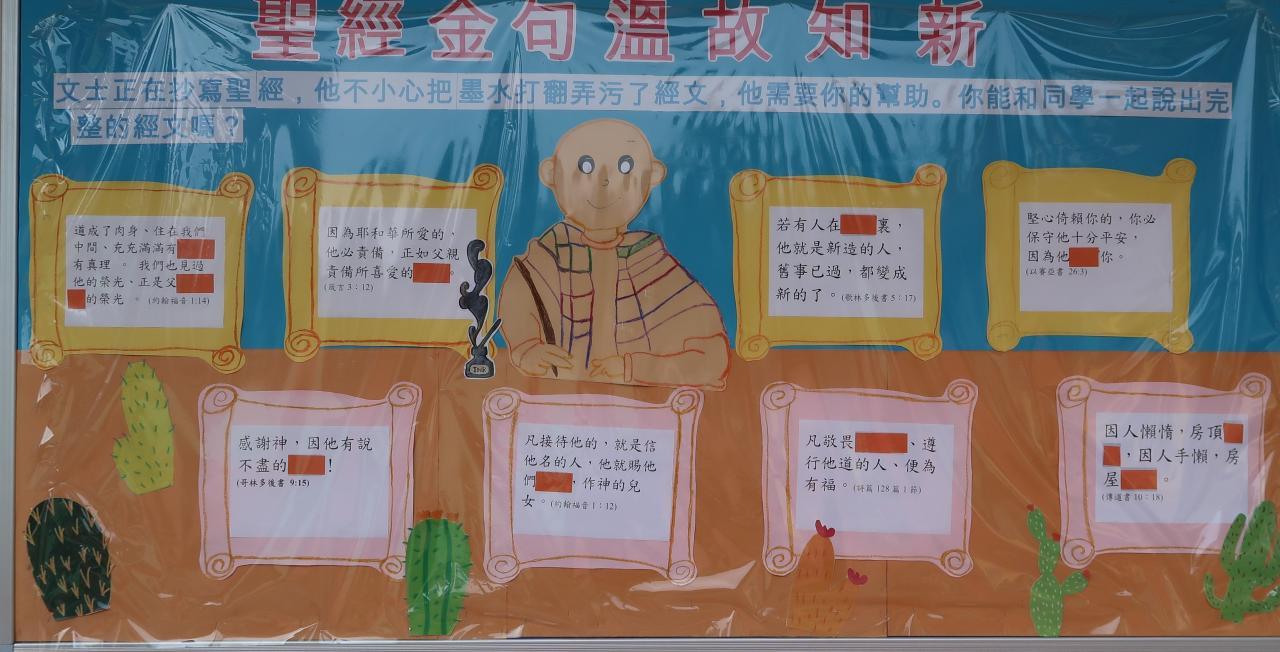 聖經金句溫故知新
文士正在抄寫聖經，他不小心把墨水打翻弄污了經文，他需要你的幫助。你能和同學一起說出完
整的經文嗎？
道成了肉身、住在我們
中間、充充滿滿有
有真理 。 我們也見過
他的榮光、正是父
的榮光 。 (約翰福音 1:14)
因為耶和華所愛的，
他必責備，正如父親
責備所喜愛的 。
(箴言 3：12)
若有人在 裏，
他就是新造的人，
舊事已過，都變成
新的了。(歌林多後書 5：17)
堅心倚賴你的，你必
保守他十分平安，
因為他 你。
(以賽亞書 26:3)
INK
感謝神，因他有說
不盡的 !
(哥林多後書 9:15)
凡接待他的，就是信
他名的人，他就賜他
們 ，作神的兒
女。(約翰福音 1：12)
凡敬畏 、遵
行他道的人、便為
有福。(詩篇 128 篇 1 節)
因人懶惰，房頂
，因人手懶，房
屋 。
(傳道書 10：18)